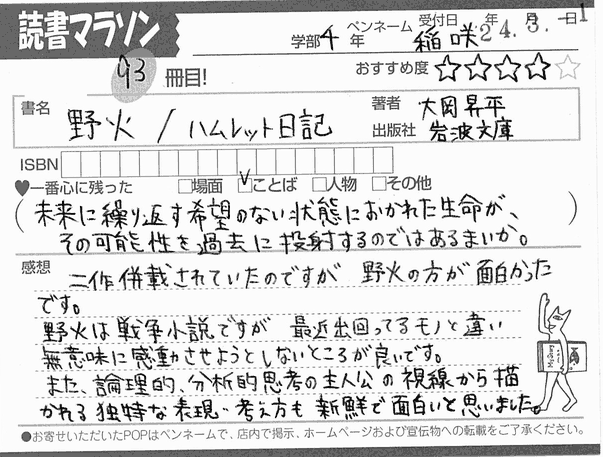 読書マラソン
学部4年 ペンネーム 稲咲 受付日 年 月 日 24.3.-1
93冊目!
おすすめ度 ★★★★☆
書名 野火/ハムレット日記
著者 大岡昇平
出版社 岩波文庫
ISBN
♥一番心に残った □場面 ☑ことば □人物 □その他
(未来に繰り返す希望のない状態におかれた生命が、
その可能性を過去に投射するのではあるまいか。)
感想
二作併載されていたのですが 野火の方が面白かった
です。
野火は戦争小説ですが 最近出回ってるモノと違い
無意味に感動させようとしないところが良いです。
また、論理的、分析的思考の主人公の視線から描
かれる独特な表現・考え方も新鮮で面白いと思いました。
●お寄せいただいたPOPはペンネームで、店内で掲示、ホームページおよび宣伝物への転載をご了承ください。